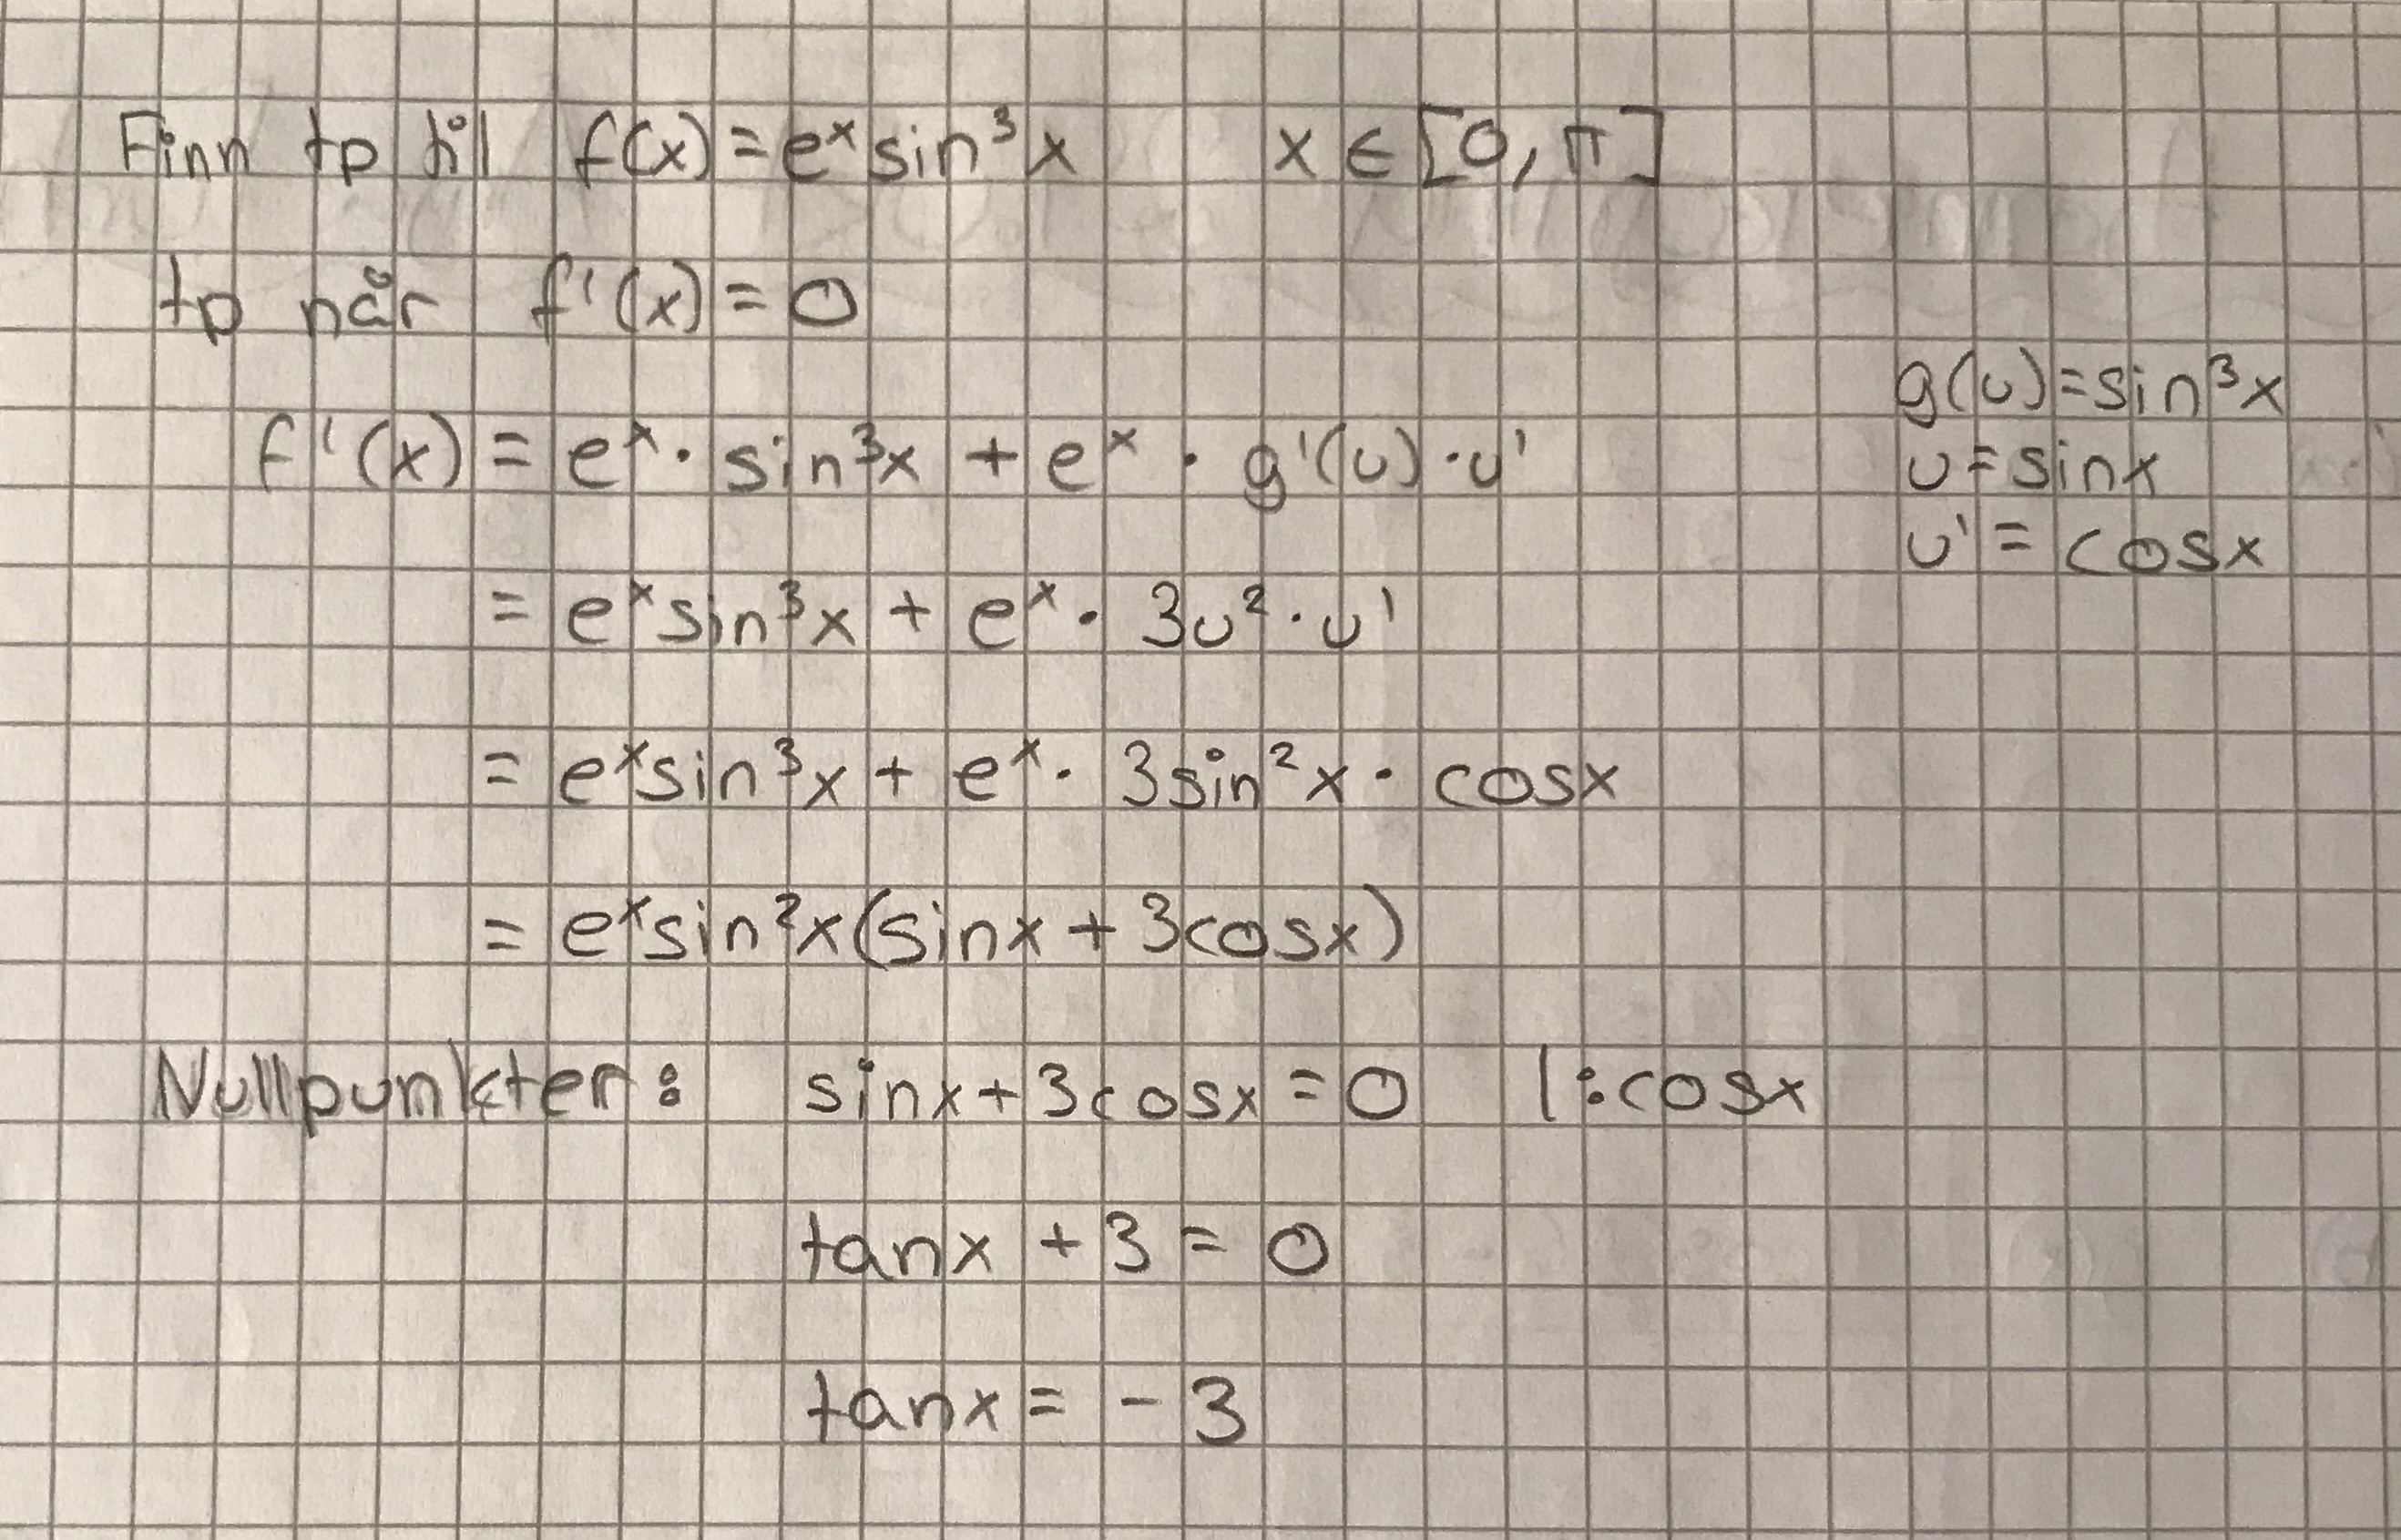 Finn tp til f(x) = eˣ sin³x x ∈ [0, π]
tp når f'(x) = 0
g(u) = sin³x
u = sinx
u' = cosx
f'(x) = eˣ · sin³x + eˣ · g'(u) · u'
= eˣsin³x + eˣ · 3u² · u'
= eˣsin³x + eˣ · 3sin²x · cosx
= eˣsin²x(sinx + 3cosx)
Nullpunkter: sinx + 3cosx = 0 | :cosx
tanx + 3 = 0
tanx = -3